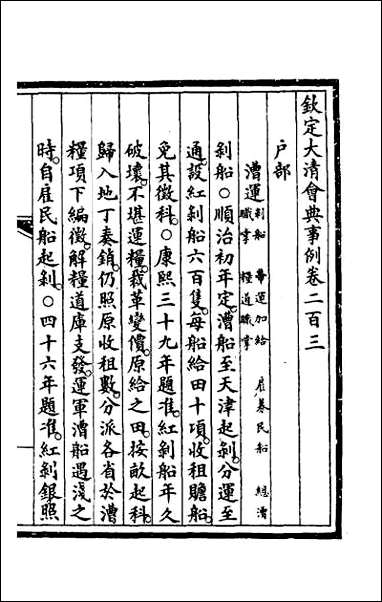 欽定大清會典事例卷二百三
戶部
漕運剝船 督運加給 雇募民船 總漕職掌 糧道職掌
剝船○順治初年定漕船至天津起剝分運至
通設紅剝船六百隻每船給田十項收租贍船
免其徵科○康熙三十九年題准紅剝船年久
破壞不堪運糧裁革變價原給之田按畝起科
歸入地丁奏銷仍照原收租數分派各省於漕
糧項下編徵解糧道庫支發運軍漕船遇淺之
時自雇民船起剝○四十六年題准紅剝銀照